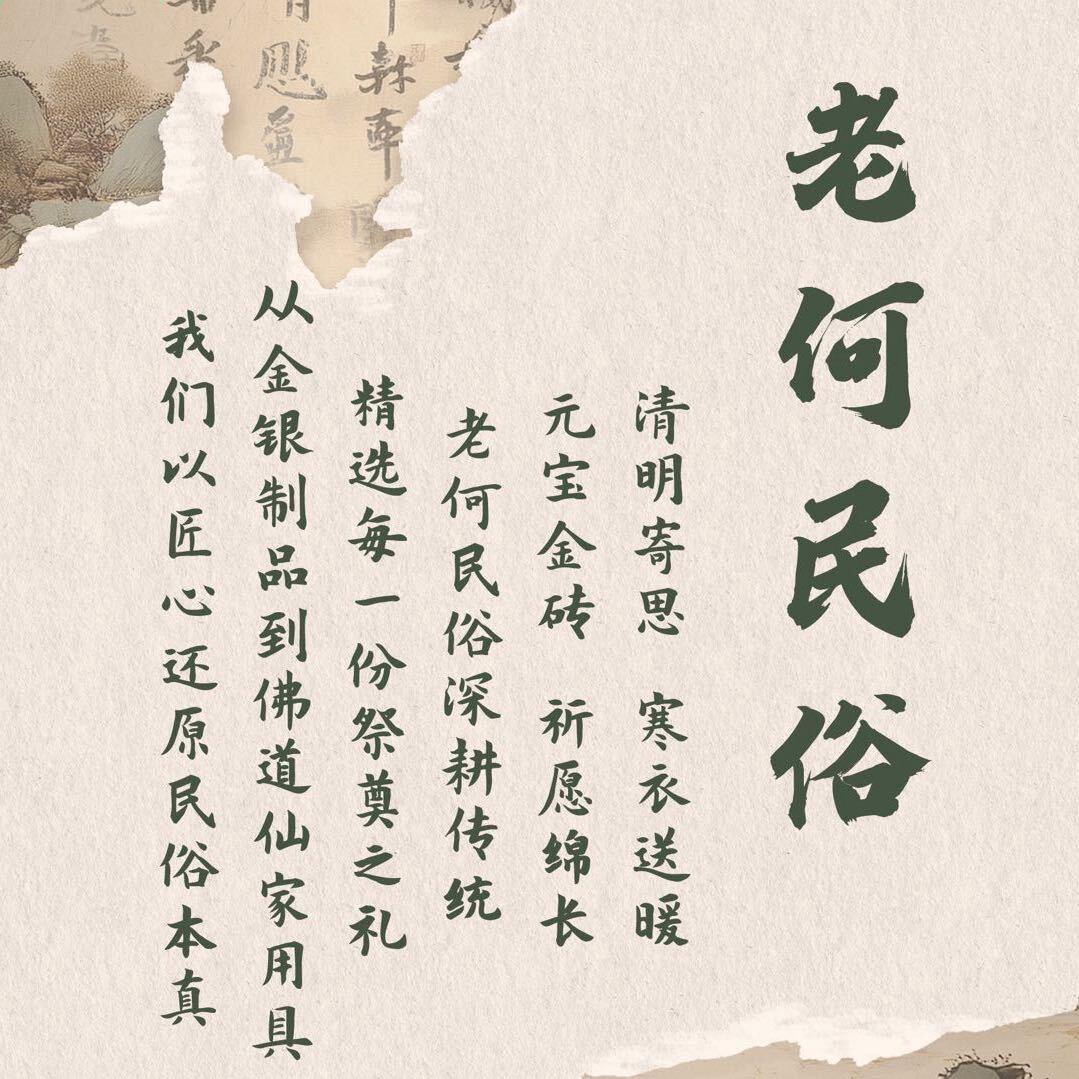 老何民俗
清明寄思 寒衣送暖
元宝金砖 祈愿绵长
老何民俗深耕传统
精选每一份祭奠之礼
从金银制品到佛道仙家用具
我们以匠心还原民俗本真